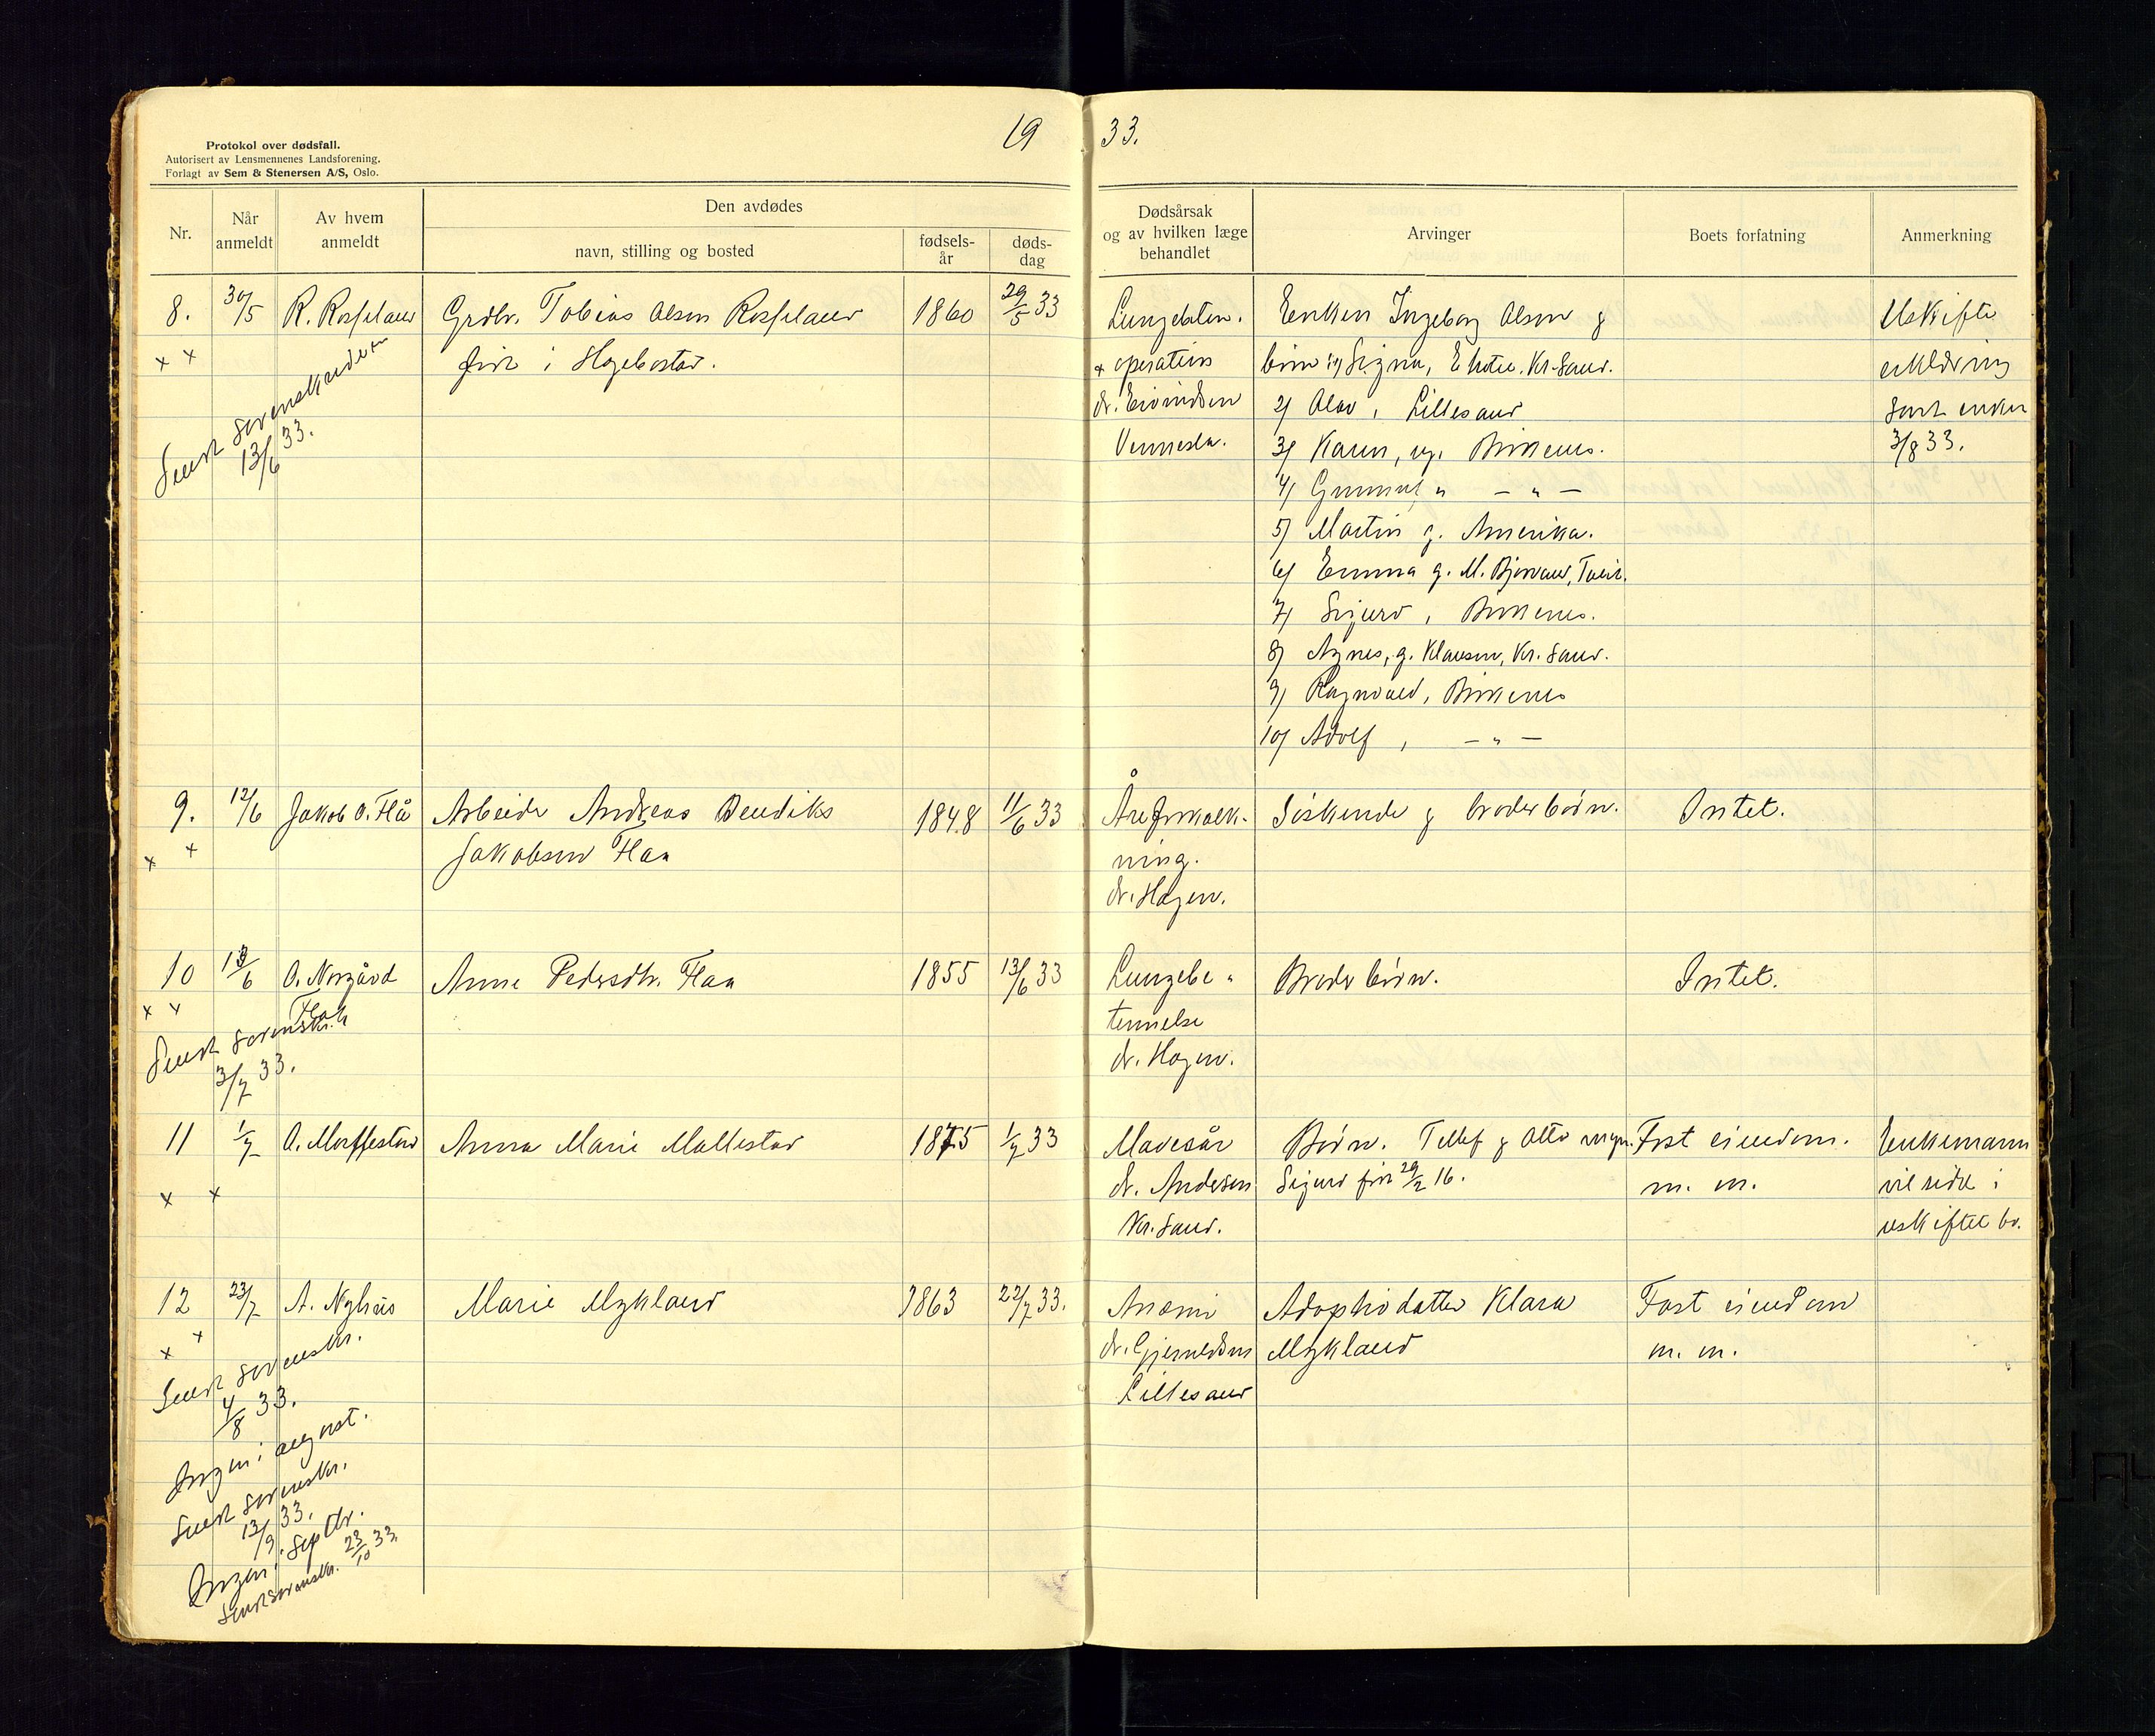 19 33.
Protokol over dødsfall.
Autorisert av Lensmennenes Landsforening.
Forlagt av Sem & Stenersen A/S, Oslo.
Nr.
Når anmeldt
Av hvem anmeldt
Den avdødes
navn, stilling og bosted
fødsels-år
døds-dag
Dødsårsak og av hvilken læge behandlet
Arvinger
Boets forfatning
Anmerkning
8. 30/5 Grdbr. Tobias Olsen 1860 29/5 33 Enken Ingeborg Olsen &
x x
født i Hægebostad.
operation
dr. Eivindsen
Vennesla.
børn 1/ Signe, Kr.Sand.
2/ Olav, Lillesand
3/ Karen, ug. Birkenes.
4/ Gunnuf, " — " —
5/ Martin g. Amerika.
6/ Emma g. M. Bjorvand, Tveit.
7/ Sigurd, Birkenes.
8/ Agnes, g. Klausen, Kr. Sand.
9/ Ragnvald, Birkenes
10/ Adolf, — " —
Uskifte
erklæring
sendt enken
3/8 33.
Sendt Sorenskriveren
13/6 33.
9. 12/6 Jakob O. Flå Arbeider Andreas Bendiks 1848 11/6 33 Åreforkalk- Søskende & broderbørn. Intet.
x x Jakobsen Flaa ning.
dr. Hagen.
10 13/6 Anne Pedersdtr. Flaa 1855 13/6 33 Lungebe- Broderbørn. Intet.
x x Flå tennelse
dr. Hagen.
Sendt Sorenskr.
3/7 33.
11 1/7 Anna Marie Mollestad 1875 1/7 33 Mavesår Børn. Tellef & Otto myn. Fast eiendom. Enkemann
x x dr. Andersen Sigurd født 29/2 16. m. m. vil sidde i
Kr.Sand. uskiftet bo.
12 23/7 A. Nyhus Marie Mykland 1863 22/7 33. Anæmi Adoptivdatter Klara Fast eiendom
x x dr. Mykland m. m.
Lillesand
Sendt Sorenskr.
4/8 33.
Ingen i august.
Sendt Sorenskr.
13/9 33.
Ingen i Septbr.
Sendt Sorenskr. 23/10 33.